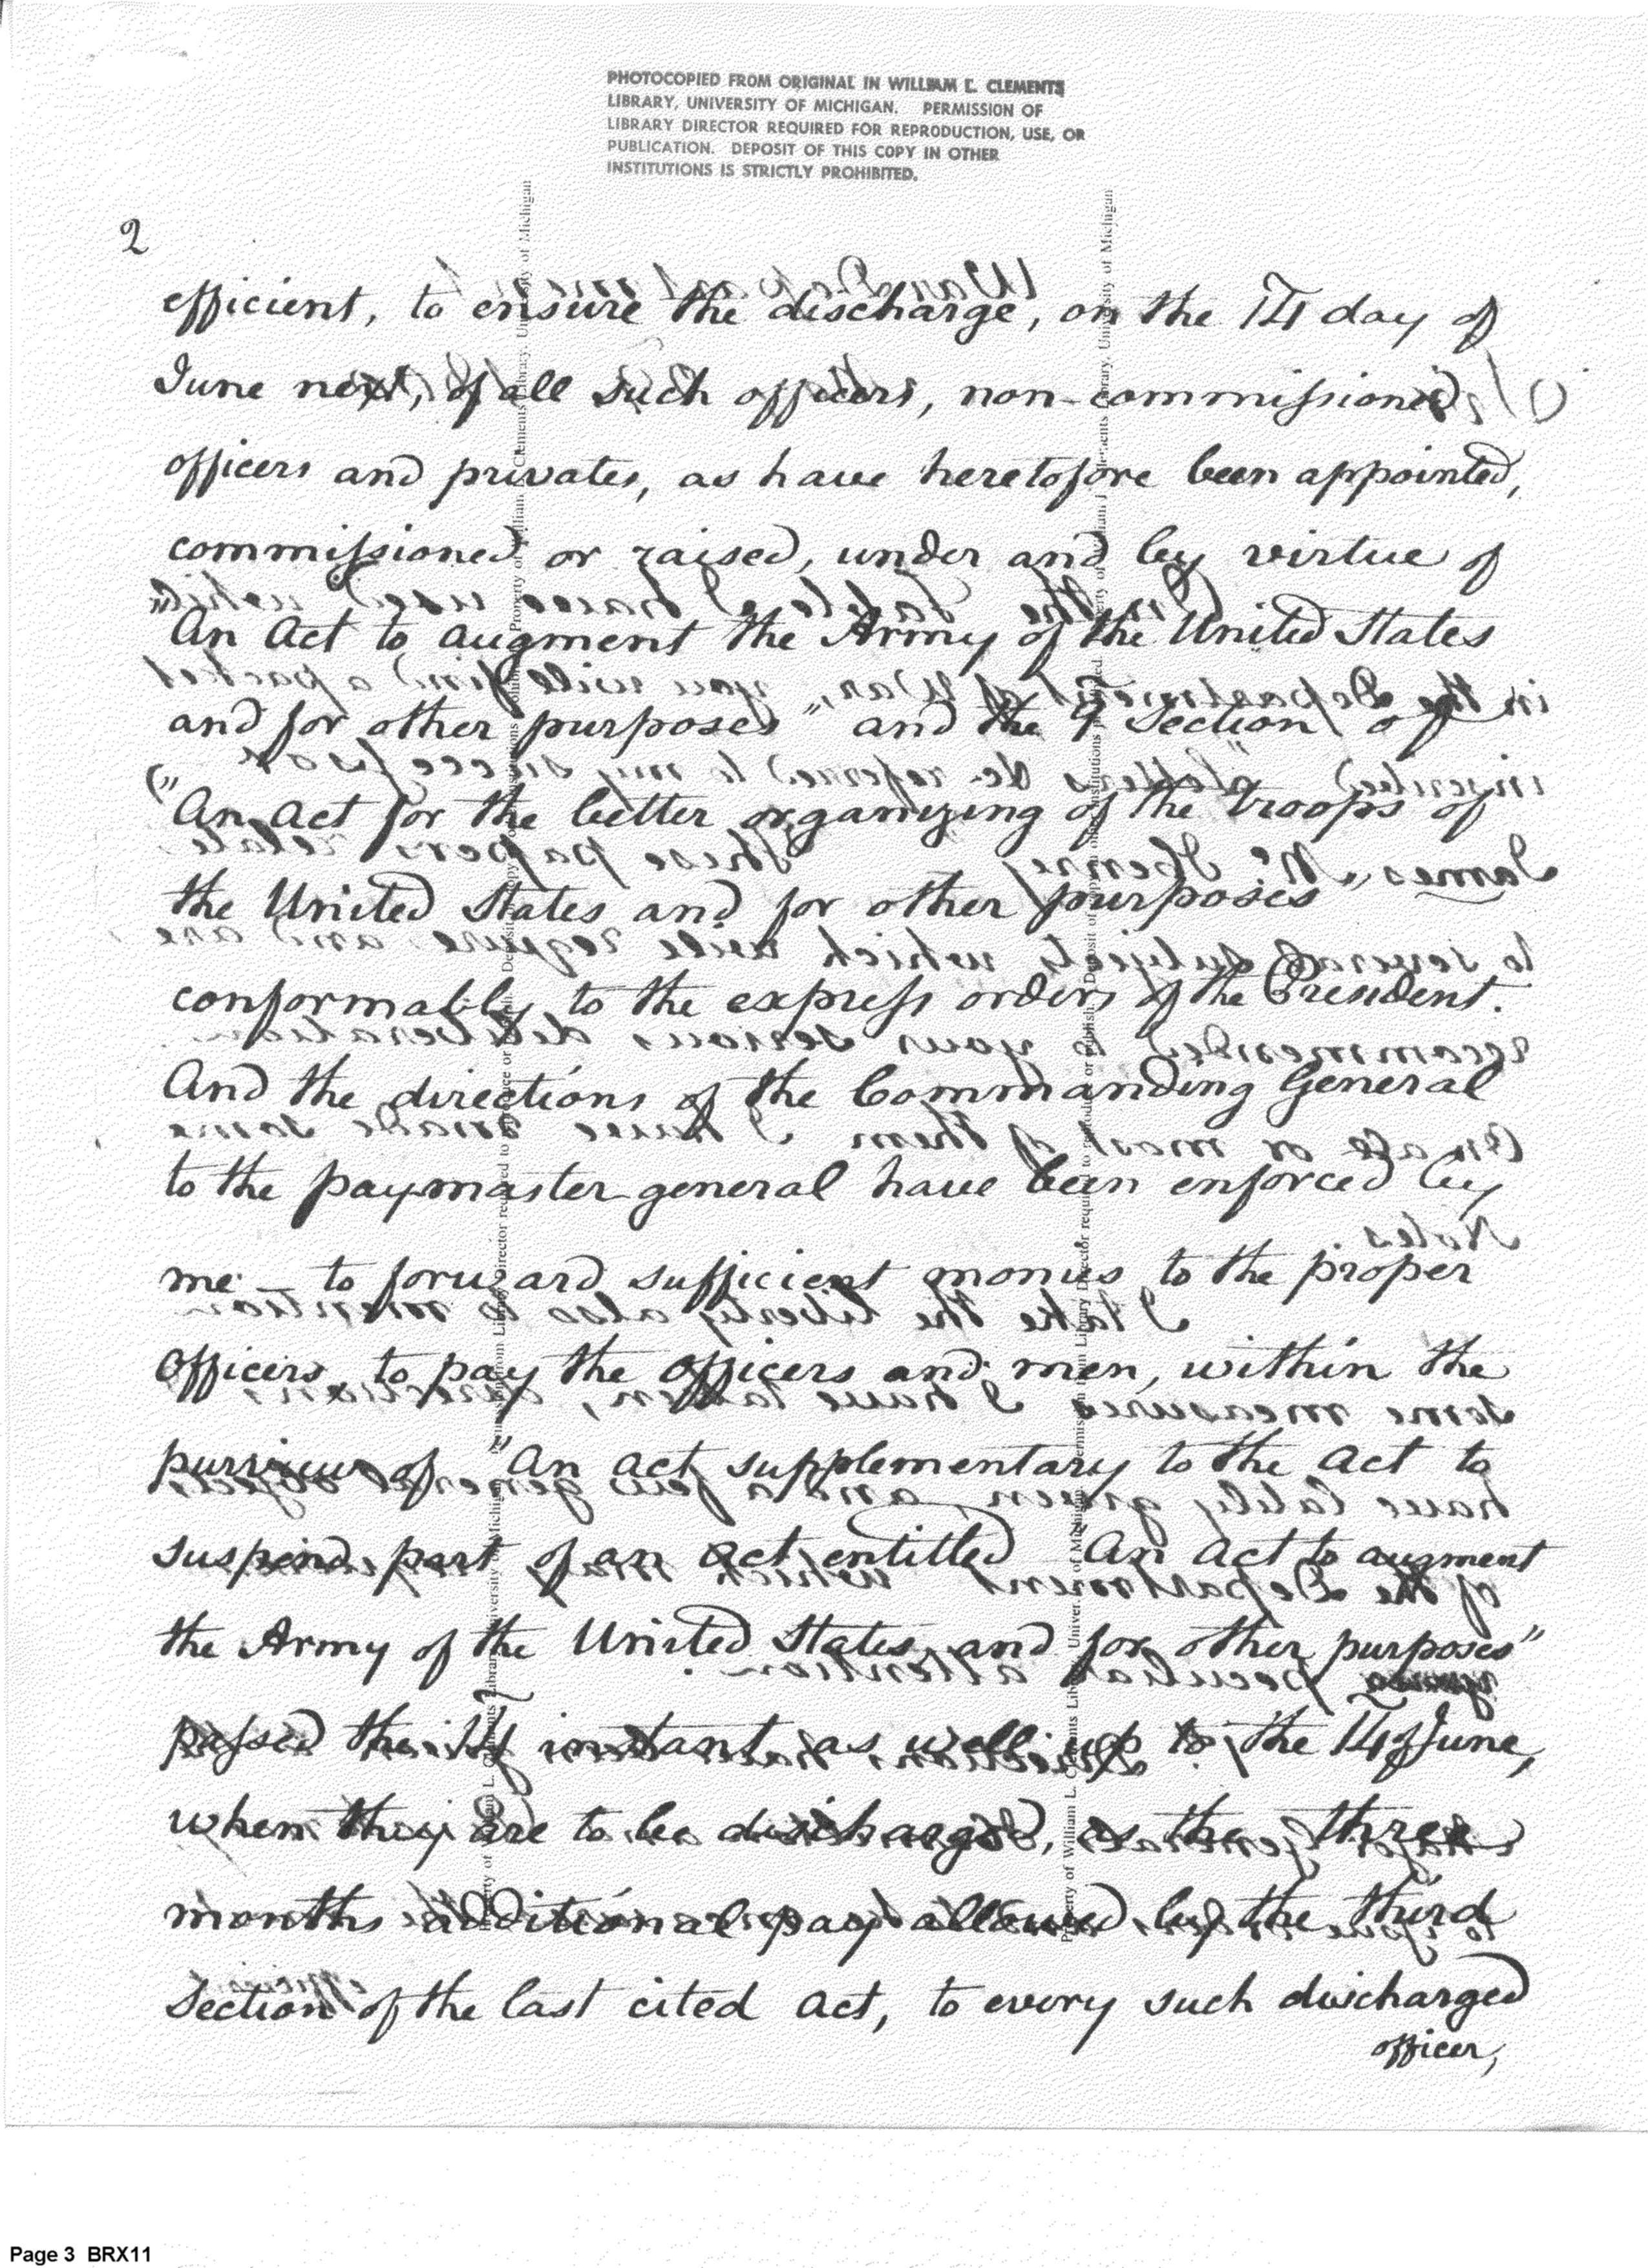 PHOTOCOPIED FROM ORIGINAL IN WILLIAM L. CLEMENTS
LIBRARY, UNIVERSITY OF MICHIGAN. PERMISSION OF
LIBRARY DIRECTOR REQUIRED FOR REPRODUCTION, USE, OR
PUBLICATION. DEPOSIT OF THIS COPY IN OTHER
INSTITUTIONS IS STRICTLY PROHIBITED.
2
efficient, to ensure the discharge, on the 14 day of
June next, of all such officers, non-commissioned
officers and privates, as have heretofore been appointed,
commissioned or raised, under and by virtue of
"An Act to augment the Army of the United States
and for other purposes" and the 9 Section of
"An Act for the better organizing of the troops of
the United States and for other purposes"
conformably to the express orders of the President.
And the directions of the Commanding General
to the paymaster general have been enforced by
me to forward sufficient monies to the proper
Officers, to pay the Officers and men, within the
purview of "An act supplementary to the Act to
suspend part of an Act entitled An Act to augment
the Army of the United States, and for other purposes"
passed the instant as well up to the 14 of June,
when they are to be discharged, as the three
months additional pay allowed by the third
Section of the last cited Act, to every such discharged
officer,
Page 3 BRX11